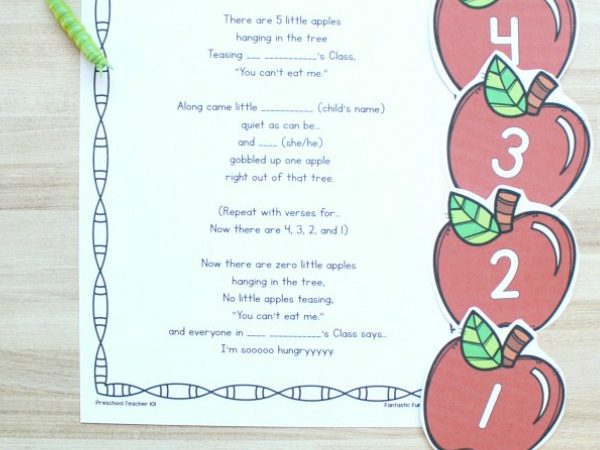 There are 5 little apples
hanging in the tree
Teasing ___ ___________'s Class,
"You can't eat me."
Along came little ___________ (child's name)
quiet as can be...
and ____ (she/he)
gobbled up one apple
right out of that tree.
(Repeat with verses for...
Now there are 4, 3, 2, and 1)
Now there are zero little apples
hanging in the tree,
No little apples teasing,
"You can't eat me."
and everyone in ____ ___________'s Class says...
I'm sooooo hungryyyyy
Preschool Teacher 101
Fantastic Fun
4
3
2
1